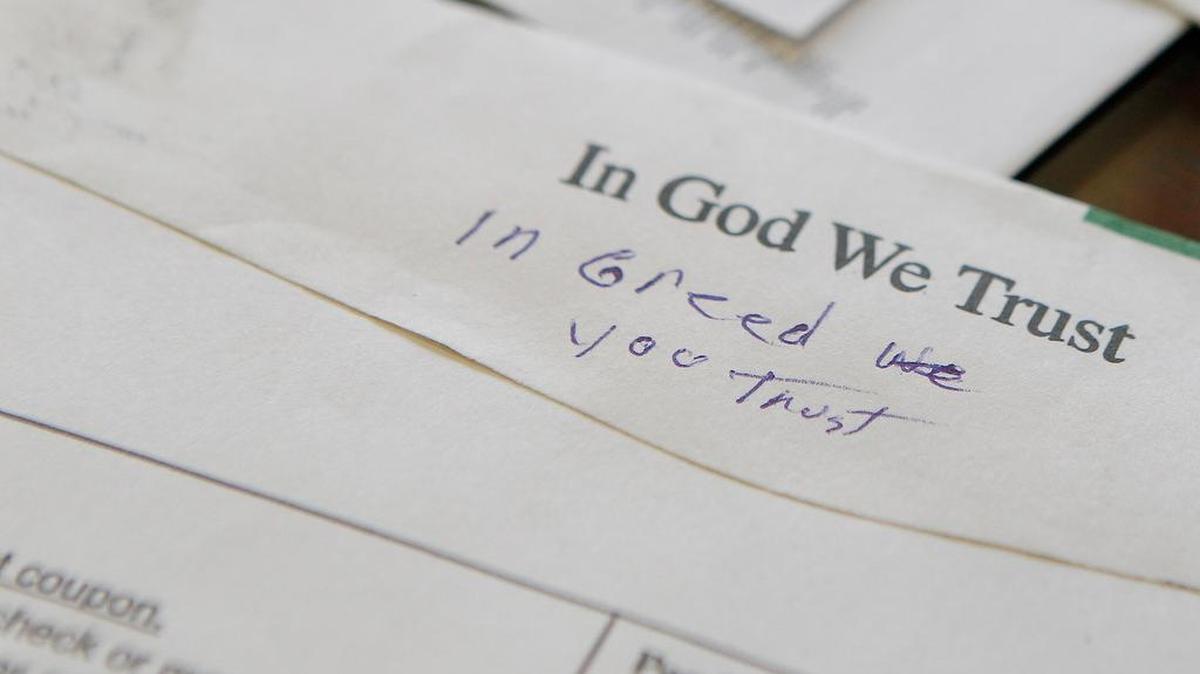 In God We Trust
In Greed we
you Trust
t coupon.
check or